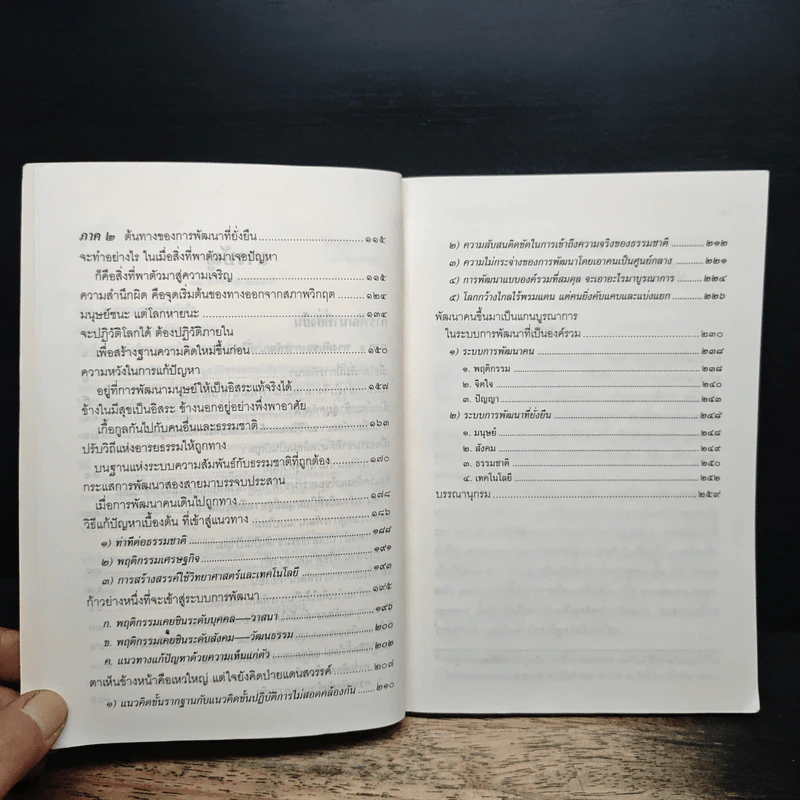 ภาค ๒ ต้นทางของการพัฒนาที่ยั่งยืน ๑๑๕
จะทำอย่างไร ในเมื่อสิ่งที่พาตัวมาเจอปัญหา
ก็คือสิ่งที่พาตัวมาสู่ความเจริญ ๑๑๕
ความสำนึกผิด คือจุดเริ่มต้นของทางออกจากสภาพวิกฤต ๑๒๔
มนุษย์ชนะ แต่โลกหายนะ ๑๓๔
จะปฏิวัติโลกได้ ต้องปฏิวัติภายใน
เพื่อสร้างฐานความคิดใหม่ขึ้นก่อน ๑๕๐
ความหวังในการแก้ปัญหา
อยู่ที่การพัฒนามนุษย์ให้เป็นอิสระแท้จริงได้ ๑๕๗
ข้างในมีสุขเป็นอิสระ ข้างนอกอยู่อย่างพึ่งพาอาศัย
เกื้อกูลกันไปกับคนอื่นและธรรมชาติ ๑๖๓
ปรับวิถีแห่งอารยธรรมให้ถูกทาง
บนฐานแห่งระบบความสัมพันธ์กับธรรมชาติที่ถูกต้อง ๑๗๐
กระแสการพัฒนาสองสายมาบรรจบประสาน
เมื่อการพัฒนาคนเดินไปถูกทาง ๑๗๘
วิธีแก้ปัญหาเบื้องต้น ที่เข้าสู่แนวทาง ๑๘๖
๑) ท่าทีต่อธรรมชาติ ๑๘๘
๒) พฤติกรรมเศรษฐกิจ ๑๙๑
๓) การสร้างสรรค์ใช้วิทยาศาสตร์และเทคโนโลยี ๑๙๓
ก้าวอย่างหนึ่งที่จะเข้าสู่ระบบการพัฒนา ๑๙๕
ก. พฤติกรรมเคยชินระดับบุคคล—วาสนา ๑๙๖
ข. พฤติกรรมเคยชินระดับสังคม—วัฒนธรรม ๒๐๐
ค. แนวทางแก้ปัญหาด้วยความเห็นแก่ตัว ๒๐๒
ตาเห็นข้างหน้าคือเหวใหญ่ แต่ใจยังคิดป่ายแดนสวรรค์ ๒๐๗
๑) แนวคิดขั้นรากฐานกับแนวคิดขั้นปฏิบัติการไม่สอดคล้องกัน ๒๑๐
๒) ความสับสนคิดขัดในการเข้าถึงความจริงของธรรมชาติ ๒๑๒
๓) ความไม่กระจ่างของการพัฒนาโดยเอาคนเป็นศูนย์กลาง ๒๑๗
๔) การพัฒนาแบบองค์รวมที่สมดุล จะเอาอะไรมาบูรณาการ ๒๒๔
๕) โลกกว้างไกลไร้พรมแดน แต่คนยิ่งคับแคบและแบ่งแยก ๒๒๖
พัฒนาคนขึ้นมาเป็นแกนบูรณาการ
ในระบบการพัฒนาที่เป็นองค์รวม ๒๓๐
๑) ระบบการพัฒนาคน ๒๓๘
๑. พฤติกรรม ๒๓๘
๒. จิตใจ ๒๔๐
๓. ปัญญา ๒๔๓
๒) ระบบการพัฒนาที่ยั่งยืน ๒๔๘
๑. มนุษย์ ๒๔๘
๒. สังคม ๒๔๙
๓. ธรรมชาติ ๒๕๐
๔. เทคโนโลยี ๒๕๒
บรรณานุกรม ๒๕๙